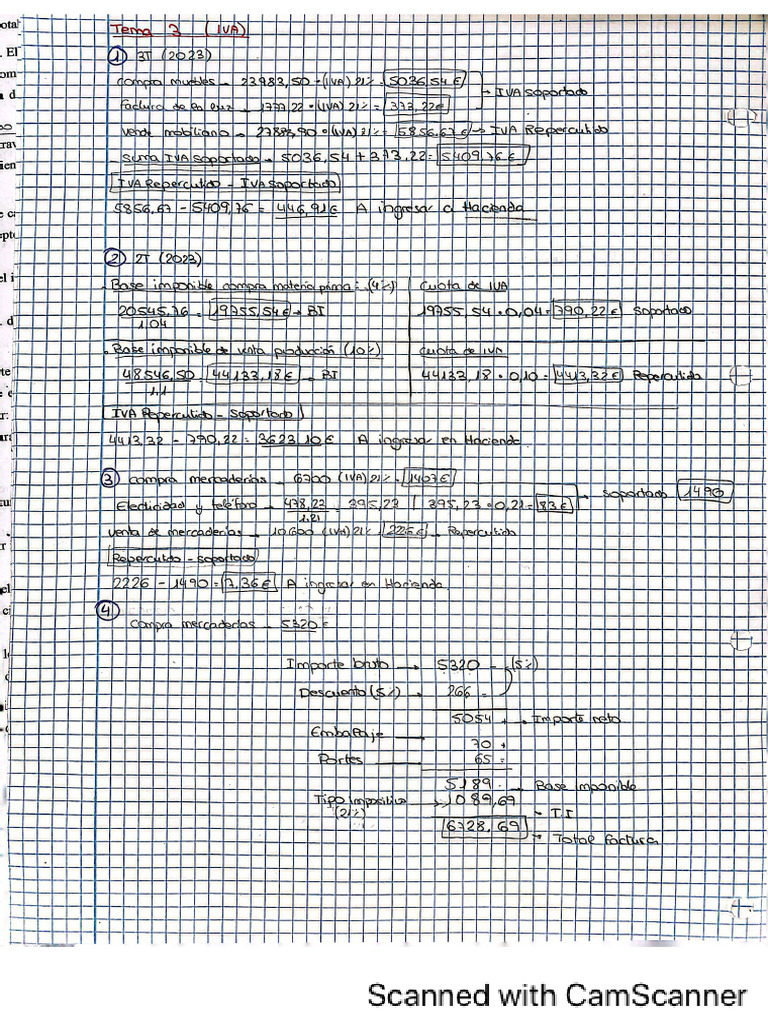 Tema 3 (IVA)
① 3T (2023)
compra muebles → 23983,50 · (IVA) 21% = 5036,54€
→ IVA soportado
factura de la luz → 1777,22 · (IVA) 21% = 373,22€
vende mobiliario → 27889,90 · (IVA) 21% = 5856,67€ → IVA Repercutido
Suma IVA soportado → 5036,54 + 373,22 = 5409,76€
IVA Repercutido - IVA soportado
5856,67 - 5409,76 = 446,91€ A ingresar a Hacienda
② 2T (2023)
· Base imponible compra materia prima: (4%) Cuota de IVA
20545,76 = 19755,54€ → BI 19755,54 · 0,04 = 790,22€ soportado
1,04
· Base imponible de venta producción (10%) cuota de IVA
48546,50 = 44133,18€ → BI 44133,18 · 0,10 = 4413,32€ Repercutido
1,1
IVA Repercutido - Soportado
4413,32 - 790,22 = 3623,10€ A ingresar en Hacienda
③ compra mercaderías → 6700 (IVA) 21% = 1407€
→ soportado 1490
Electricidad y teléfono → 478,23 = 395,23 | 395,23 · 0,21 = 83€
1,21
venta de mercaderías → 10600 (IVA) 21% = 2226€ → Repercutido
Repercutido - soportado
2226 - 1490 = 7,36€ A ingresar en Hacienda
④
compra mercaderías → 5320€
Importe bruto → 5320 - (5%)
Descuento (5%) → 266 =
5054 + → Importe neto
Embalaje 70 +
Portes 65 =
5189 · Base imponible
Tipo impositivo 1089,69 → T.I
(21%)
6728,69 → Total factura
Scanned with CamScanner